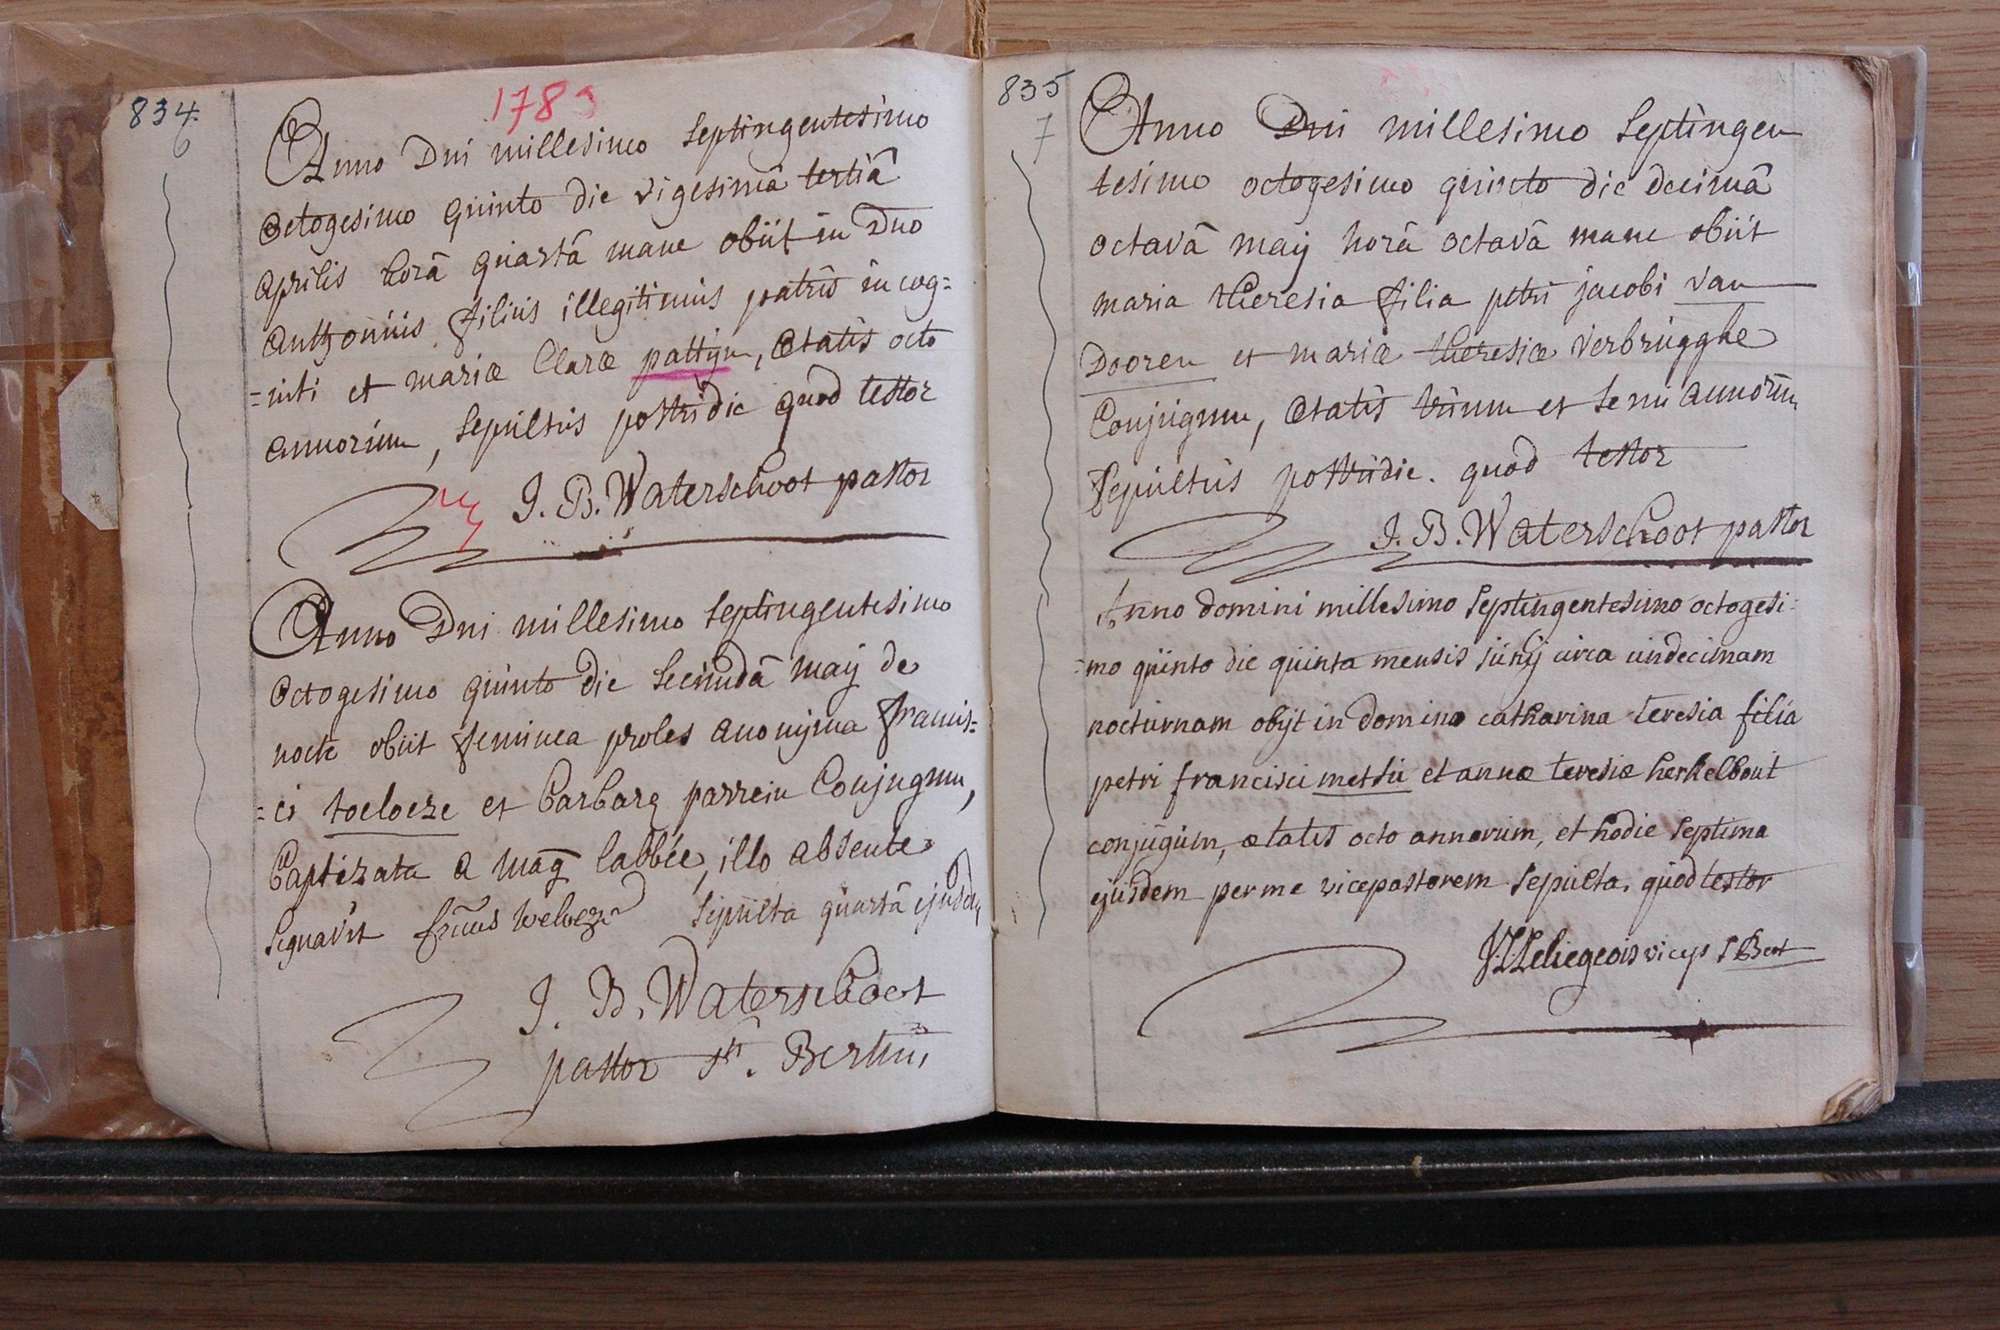 834
6
1785
Anno Dni millesimo septingentesimo
octogesimo quinto die vigesimâ tertiâ
aprilis horâ quartâ mane obiit in Dno
anthonius filius illegitimus patris incog=
=niti et mariæ Claræ pattyn, ætatis octo
annorum, sepultus postridie quod testor
J. B. Waterschoot pastor
Anno Dni millesimo septingentesimo
octogesimo quinto die secundâ maij de
nocte obiit feminea proles anonyma francis=
=ci toeloeze et barbaræ parrein Conjugum,
baptizata a mag labbée, illo absente
signavit sepulta quartâ ejusd,
J. B. Waterschoot
pastor sti. Bertini
835
7
Anno Dni millesimo septingen
tesimo octogesimo quinto die decimâ
octavâ maij horâ octavâ mane obiit
maria theresia filia petri jacobi van
Dooren et mariæ theresiæ verbrugghe
Conjugum, ætatis unum et semi annorum
sepultus postridie. quod testor
J. B. Waterschoot pastor
Anno domini millesimo septingentesimo octogesi=
=mo quinto die quinta mensis junij circa undecimam
nocturnam obijt in domino catharina teresia filia
petri francisci metsu et annæ teresiæ herkelbout
conjugum, ætatis octo annorum, et hodie septima
ejusdem per me vicepastorem sepulta. quod testor
Leliegeois vicep s Bert